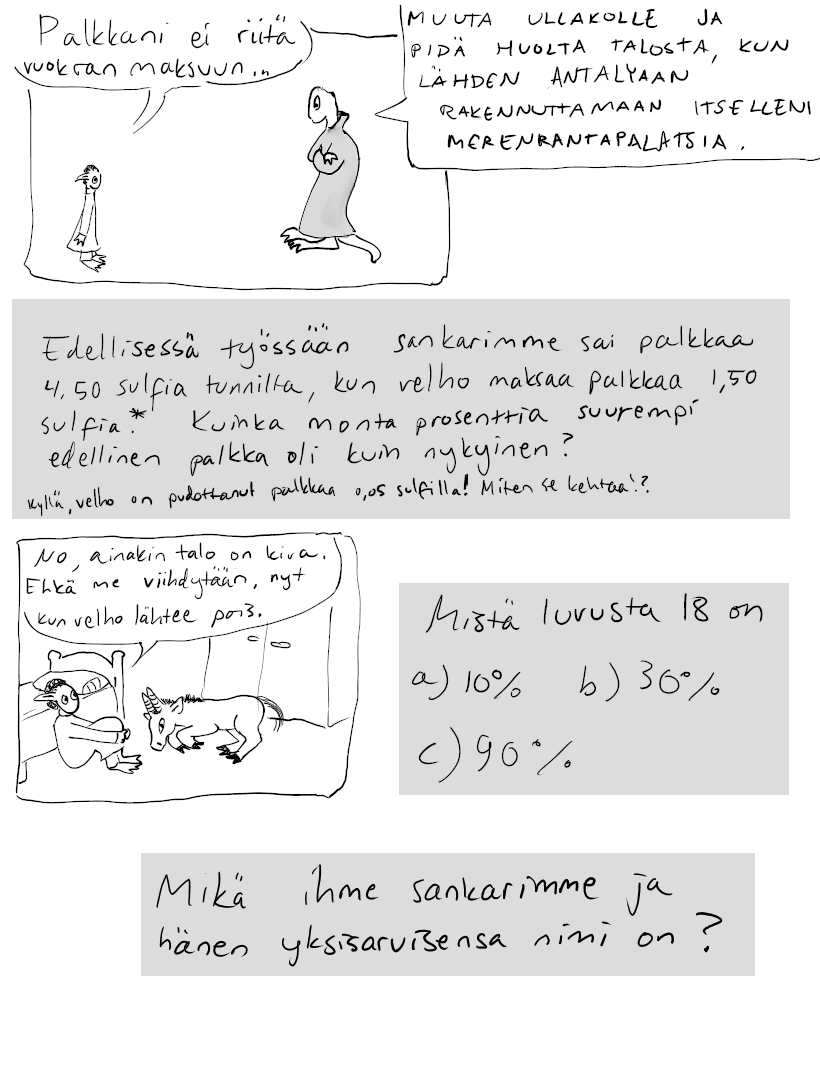 Palkkani ei riitä
vuokran maksuun...
MUUTA ULLAKOLLE JA
PIDÄ HUOLTA TALOSTA, KUN
LÄHDEN ANTALYAAN
RAKENNUTTAMAAN ITSELLENI
MERENRANTAPALATSIA.
Edellisessä työssään sankarimme sai palkkaa
4,50 sulfia tunnilta, kun velho maksaa palkkaa 1,50
sulfia.* Kuinka monta prosenttia suurempi
edellinen palkka oli kuin nykyinen?
Kyllä, velho on pudottanut palkkaa 0,05 sulfilla! Miten se kehtaa!?
No, ainakin talo on kiva.
Ehkä me viihdytään, nyt
kun velho lähtee pois.
Mistä luvusta 18 on
a) 10% b) 30%
c) 90%
Mikä ihme sankarimme ja
hänen yksisarvisensa nimi on?